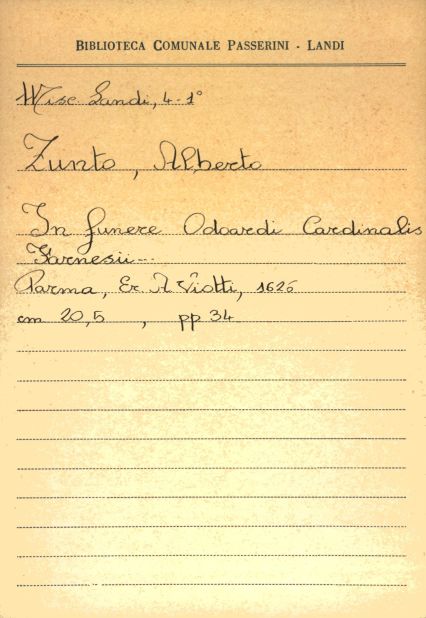 BIBLIOTECA COMUNALE PASSERINI - LANDI
Misc Landi, 4-1°
Zunto, Alberto
In funere Odoardi Cardinalis
Farnesii--
Parma, Er. A Viotti, 1626
cm 20,5 , pp 34